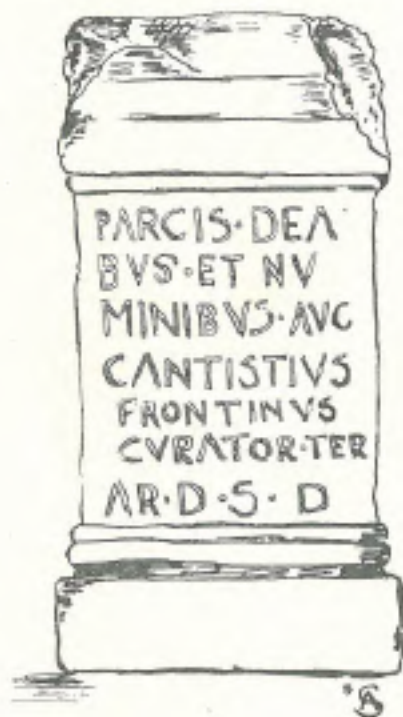 PARCIS·DEA
BVS·ET NV
MINIBVS·AVG
CANTISTIVS
FRONTINVS
CVRATOR·TER
AR·D·S·D